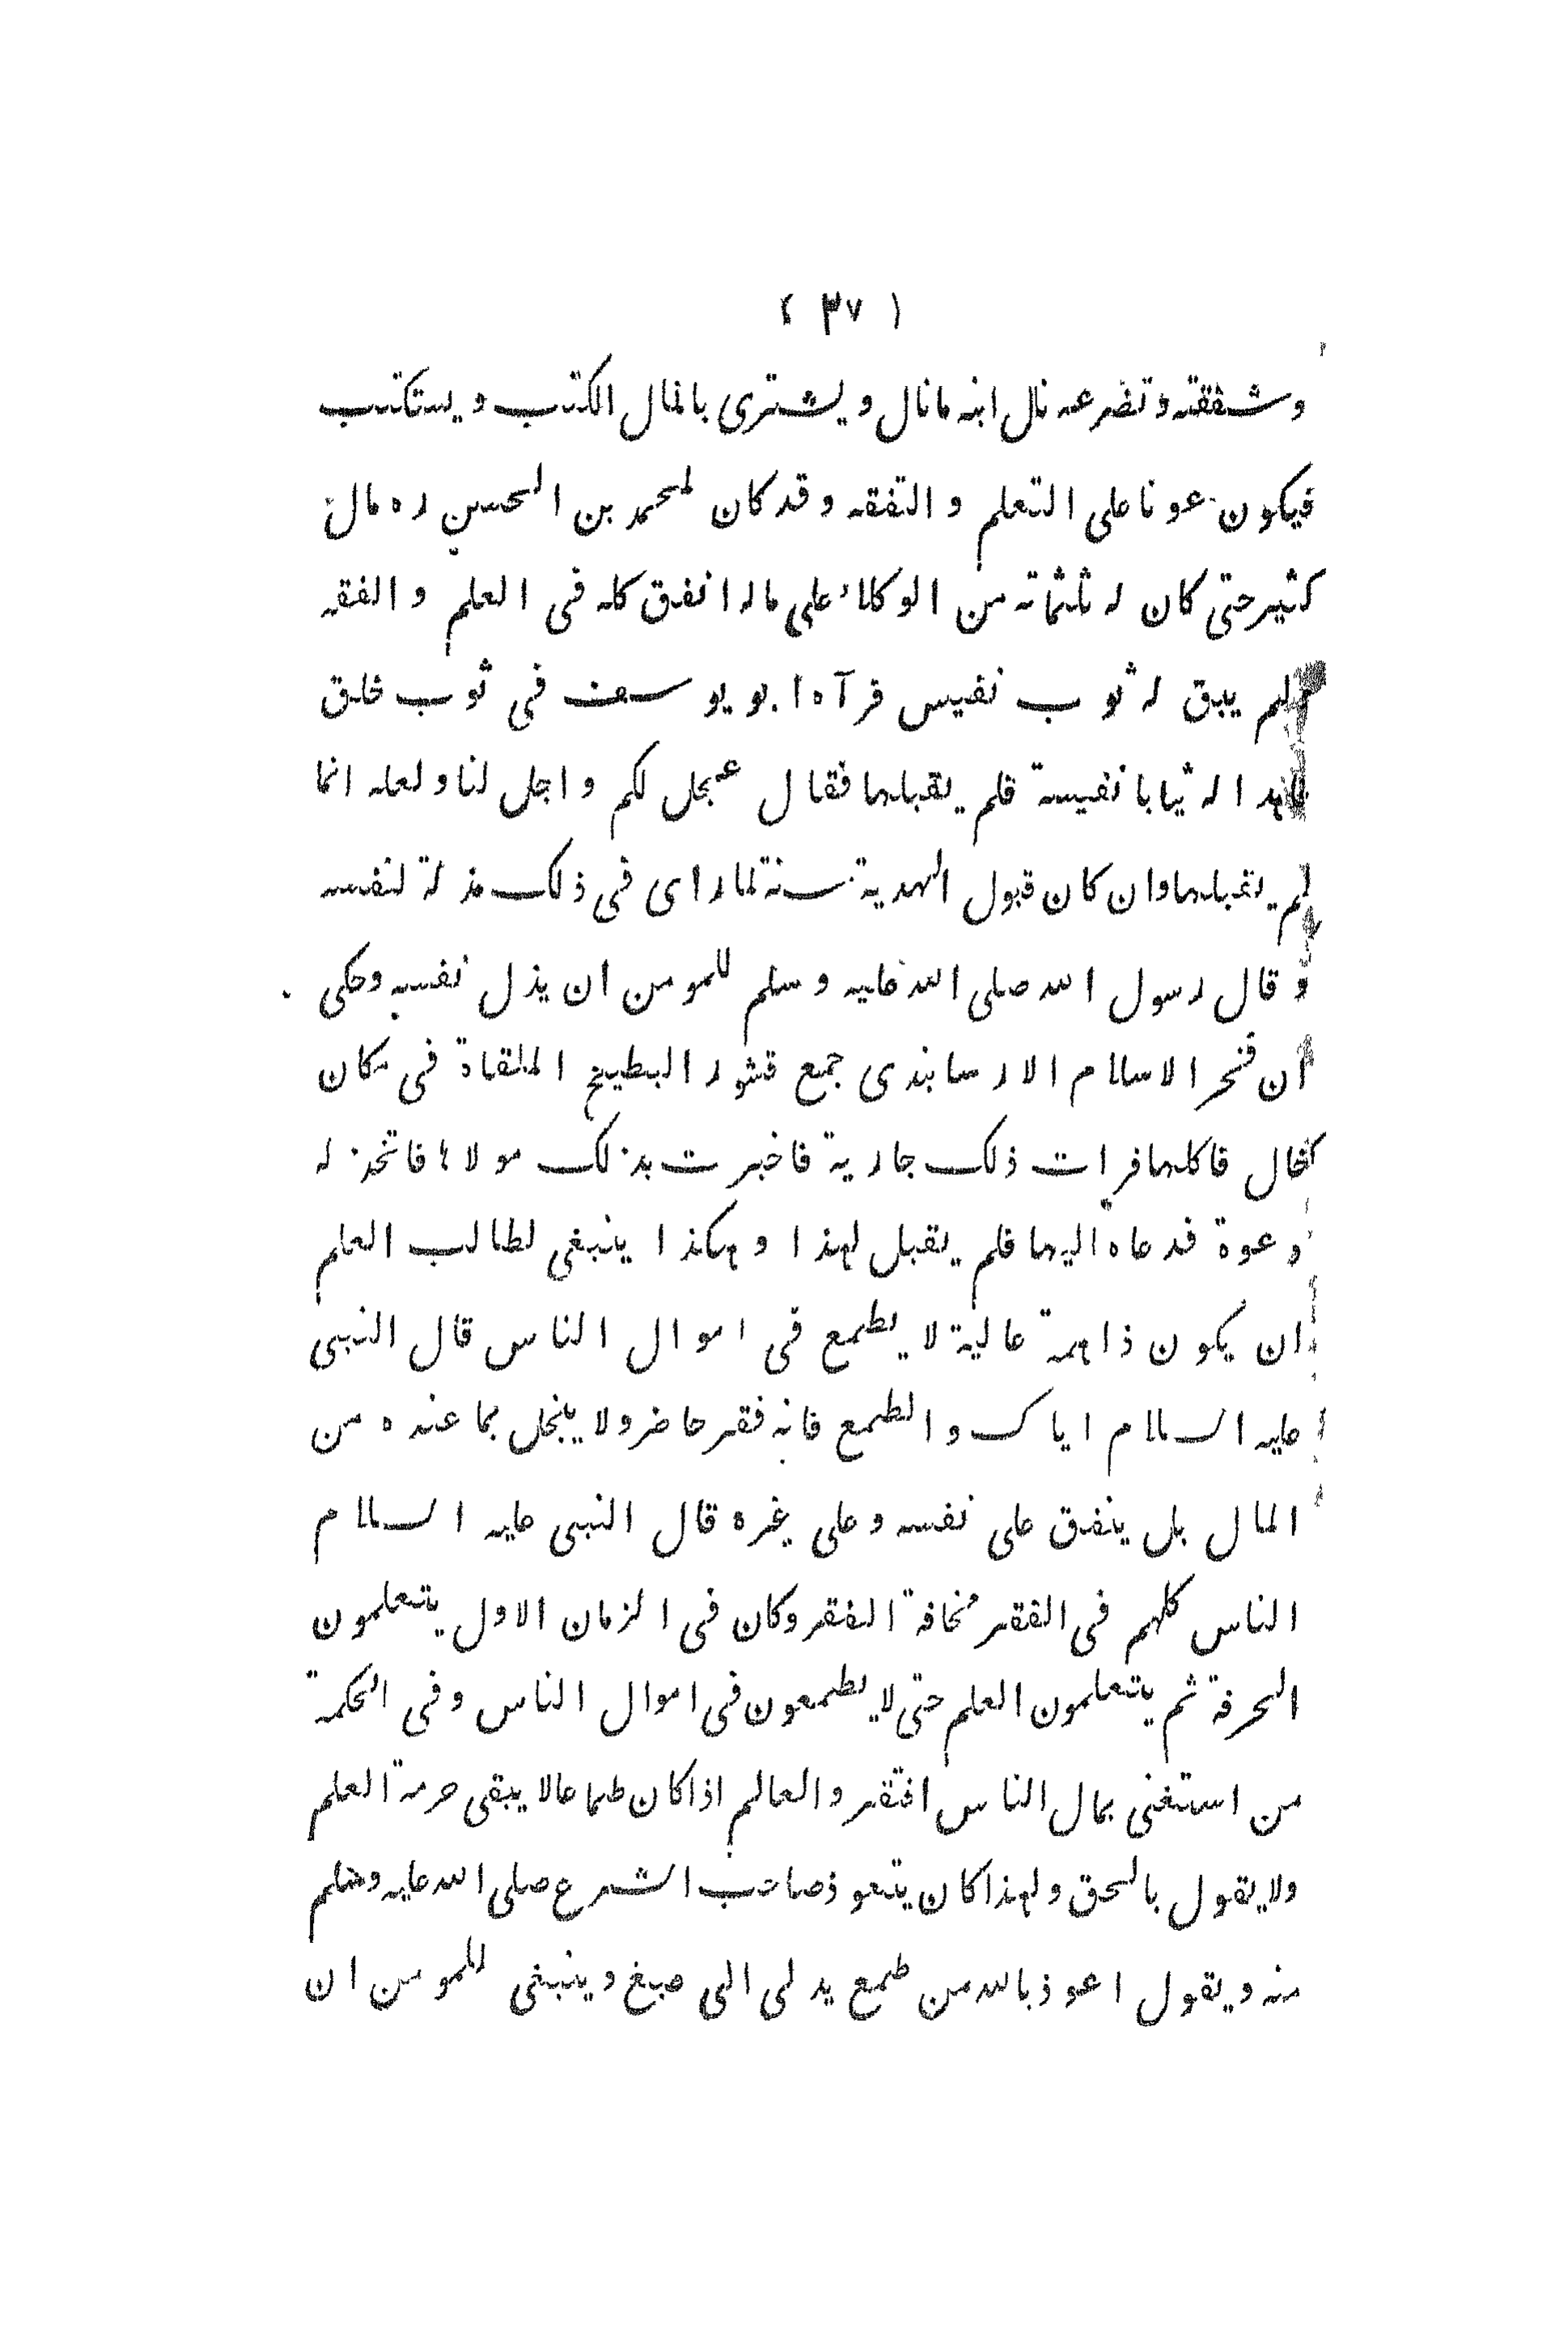 ( ٣٧ )
وشفقته وتضرعه نال ابنه مانال ويشترى بالمال الكتب ويستكتب
فيكون عونا على التعلم والتفقه وقد كان لمحمد بن الحسن ره مال
كثير حتى كان له ثلثمائة من الوكلاء على ماله انفق كله فى العلم والفقه
ولم يبق له ثوب نفيس فرآه ابو يوسف فى ثوب خلق
فاهد اله ثيابا نفيسة فلم يقبلها فقال عجل لكم واجل لنا ولعله انما
لم يقبلها وان كان قبول الهدية سنة لما راى فى ذلك مذلة لنفسه
وقال رسول الله صلى الله عليه وسلم للمومن ان يذل نفسه وحكى
ان فخر الاسلام الارسابندى جمع قشور البطيخ الملقاة فى مكان
خال فاكلها فرات ذلك جارية فاخبرت بذلك مولاها فاتخذ له
دعوة فدعاه اليها فلم يقبل لهذا وهكذا ينبغى لطالب العلم
ان يكون ذا همة عالية لا يطمع فى اموال الناس قال النبى
عليه السلام اياك والطمع فانه فقر حاضر ولا يبخل بما عنده من
المال بل ينفق على نفسه وعلى غيره قال النبى عليه السلام
الناس كلهم فى الفقر مخافة الفقر وكان فى الزمان الاول يتعلمون
الحرفة ثم يتعلمون العلم حتى لا يطمعون فى اموال الناس وفى الحكمة
من استغنى بمال الناس افتقر والعالم اذا كان طماعا لا يبقى حرمة العلم
ولا يقول بالحق ولهذا كان يتعوذ صاحب الشرع صلى الله عليه وسلم
منه ويقول اعوذ بالله من طمع يدلى الى صبغ وينبغى للمومن ان